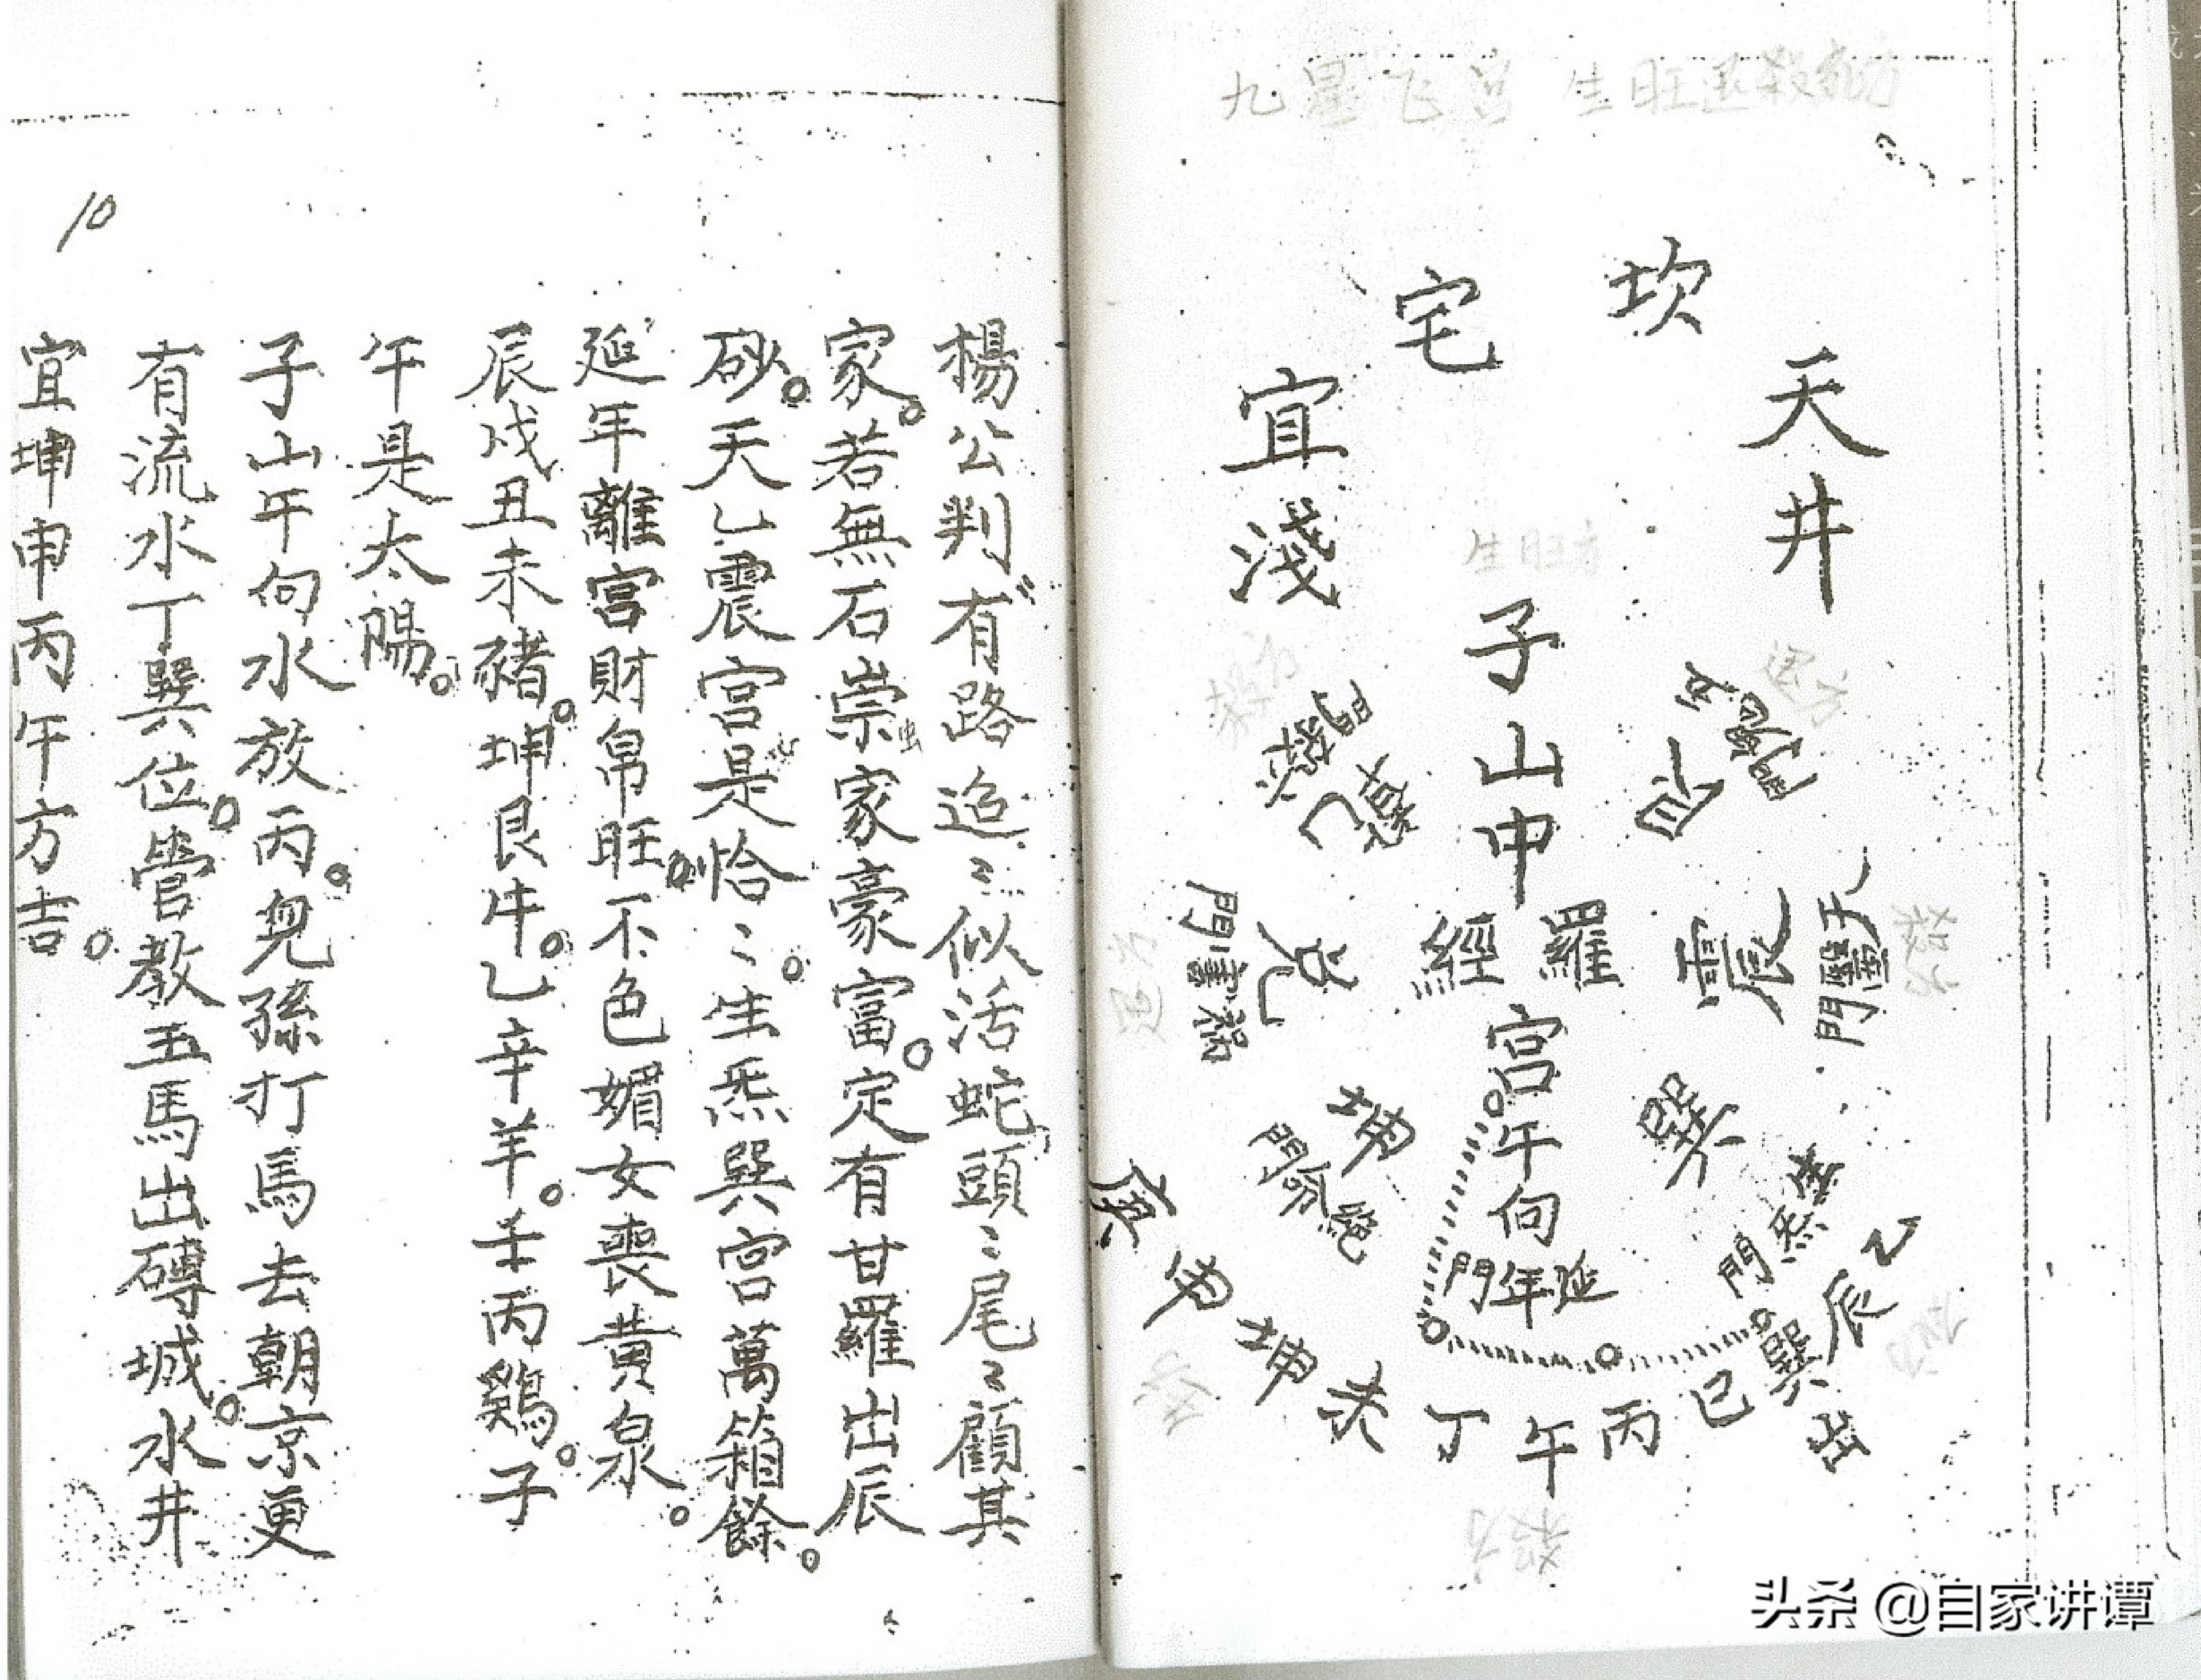 九星飞宫 生旺退殺
坎宅
天井
宜淺
生旺方
子山中宮午向
羅經
艮
五鬼門
震
天醫門
巽
生炁門
延年門
坤
絕命門
兌
禍害門
乾
六煞門
退方
殺方
退方
殺方
乙辰巽巳丙午丁未坤申庚
出
楊公判有路迢〻似活蛇頭〻尾〻顧其
家。若無石崇家豪富。定有甘羅出辰
砂。天乙震宮是恰〻。生炁巽宮萬箱餘。
延年離宮財帛旺。不色媚女喪黃泉。
辰戌丑未豬。坤艮牛。乙辛羊。壬丙鷄。子
午是太陽。
子山午向水放丙。兒孫打馬去朝京更
有流水丁巽位。管教玉馬出磚城。水井
宜坤申丙午方吉。
10
头条 @自家讲谭